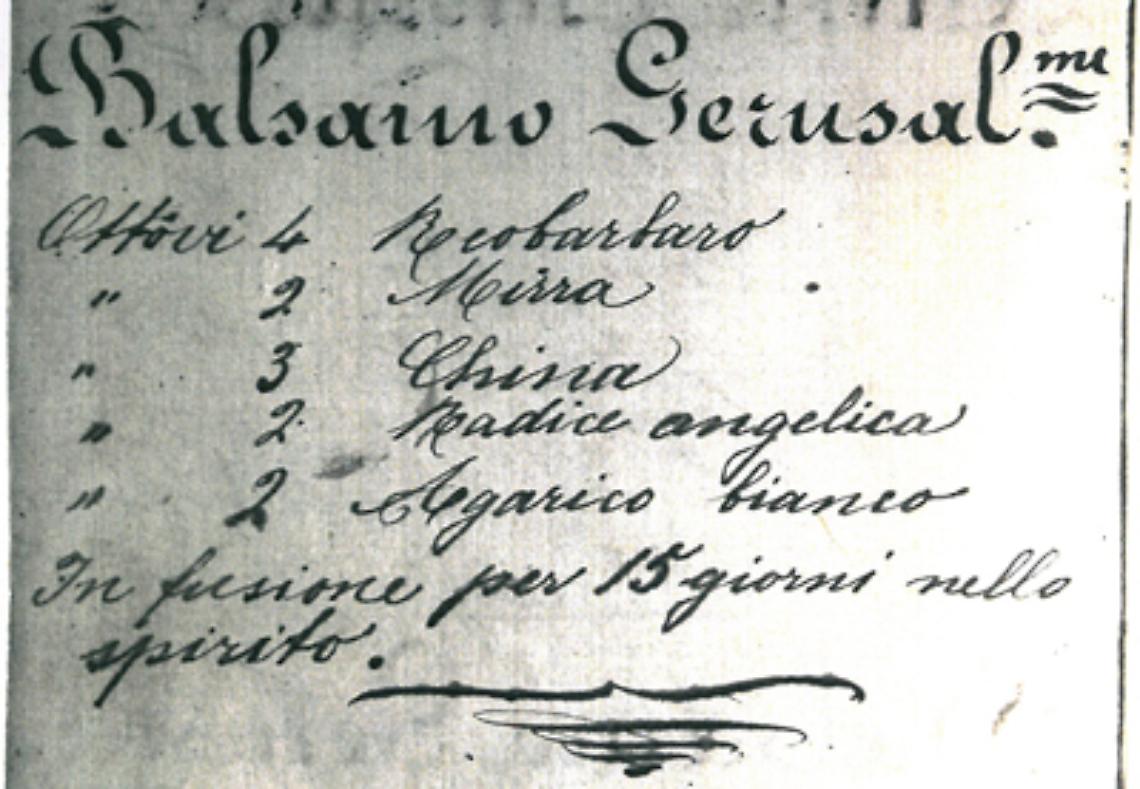 Balsamo Gerusal.me
Ottavi 4 Reobarbaro
" 2 Mirra
" 3 China
" 2 Radice angelica
" 2 Agarico bianco
In fusione per 15 giorni nello
spirito.